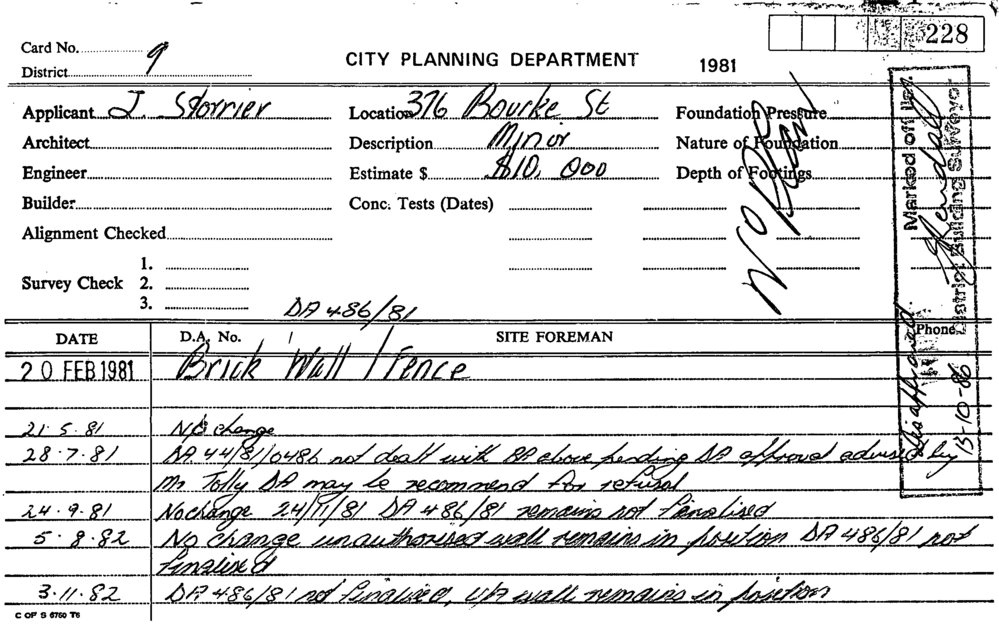 228
Card No. 9
CITY PLANNING DEPARTMENT 1981
District
Applicant J. Storrier
Location 376 Bourke St
Foundation Pressure
Architect
Description Minor
Nature of Foundation
Engineer
Estimate $ $10,000
Depth of Footings
Builder
Conc. Tests (Dates)
Alignment Checked
Survey Check
1.
2.
3.
No Plan
DA 486/81
DATE D.A. No. SITE FOREMAN Phone
20 FEB 1981 Brick Wall / Fence
21.5.81 No change
28.7.81 DA 44/81/0486 not dealt with BA above pending DA approval advised by
Mr Tolly DA may be recommend for refusal
24.9.81 No change 24/11/81 DA 486/81 remains not finalised
5.8.82 No change unauthorised wall remains in position DA 486/81 not
finalised
3.11.82 DA 486/81 not finalised, u/a wall remains in position
C OF S 6760 T6
Disapproved. Marked off
13-10-86 District Building Surveyor